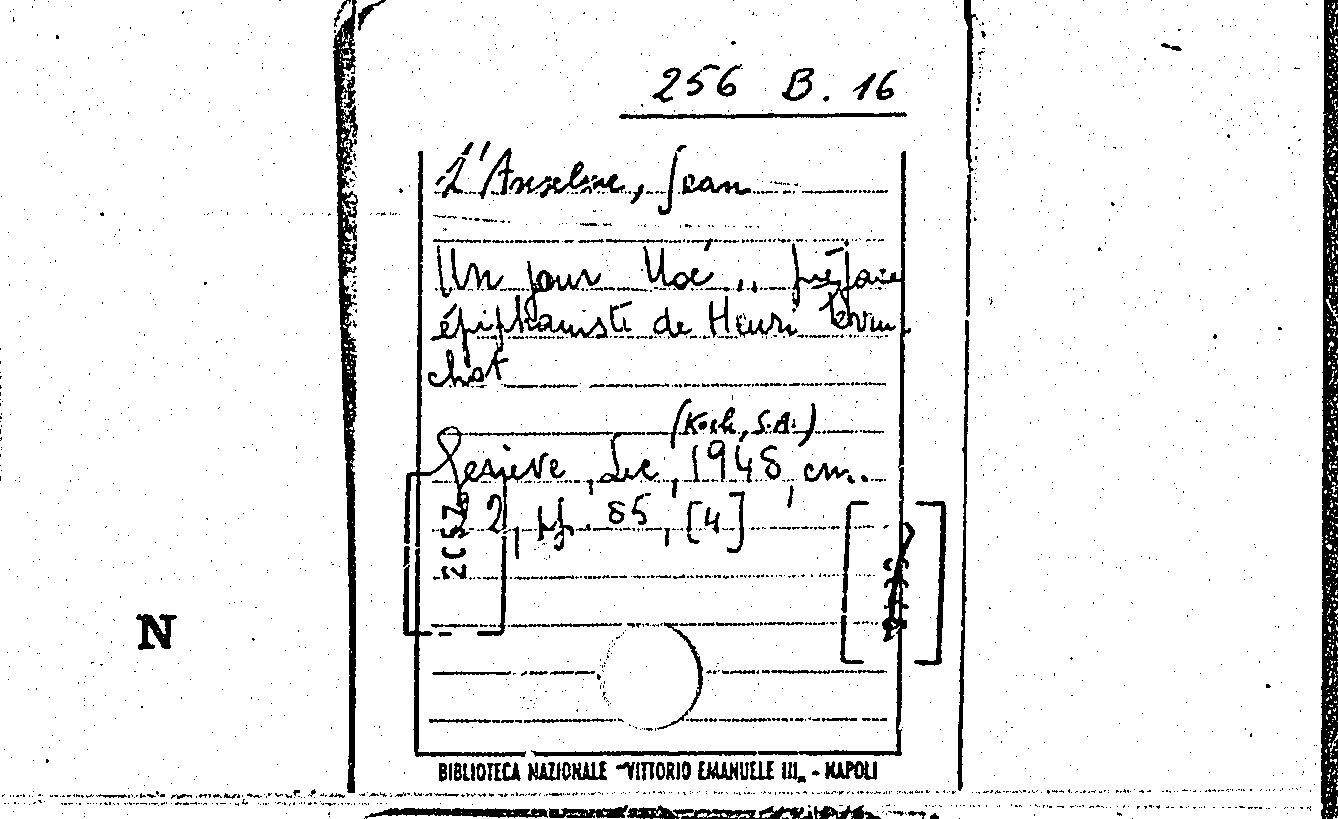 256 B. 16
L'Anselme, Jean
Un jour Noé... préface
épiphaniste de Henri Perru-
chot
(Koch, S.A.)
Genève, Luc, 1948, cm.
22, pp. 85, [4]
N
BIBLIOTECA NAZIONALE "VITTORIO EMANUELE III" - NAPOLI